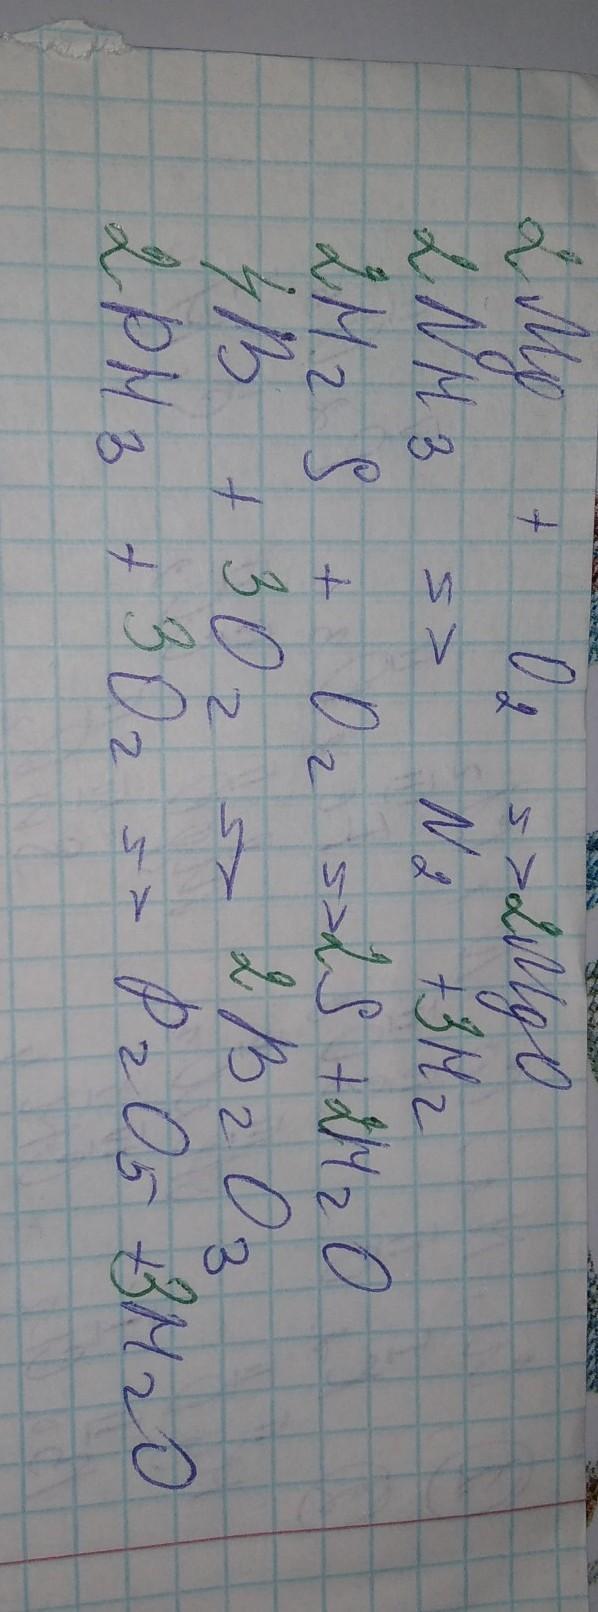 2Mg + O2 => 2MgO
2NH3 => N2 + 3H2
2H2S + O2 => 2S + 2H2O
4B + 3O2 => 2B2O3
2PH3 + 3O2 => P2O5 + 3H2O